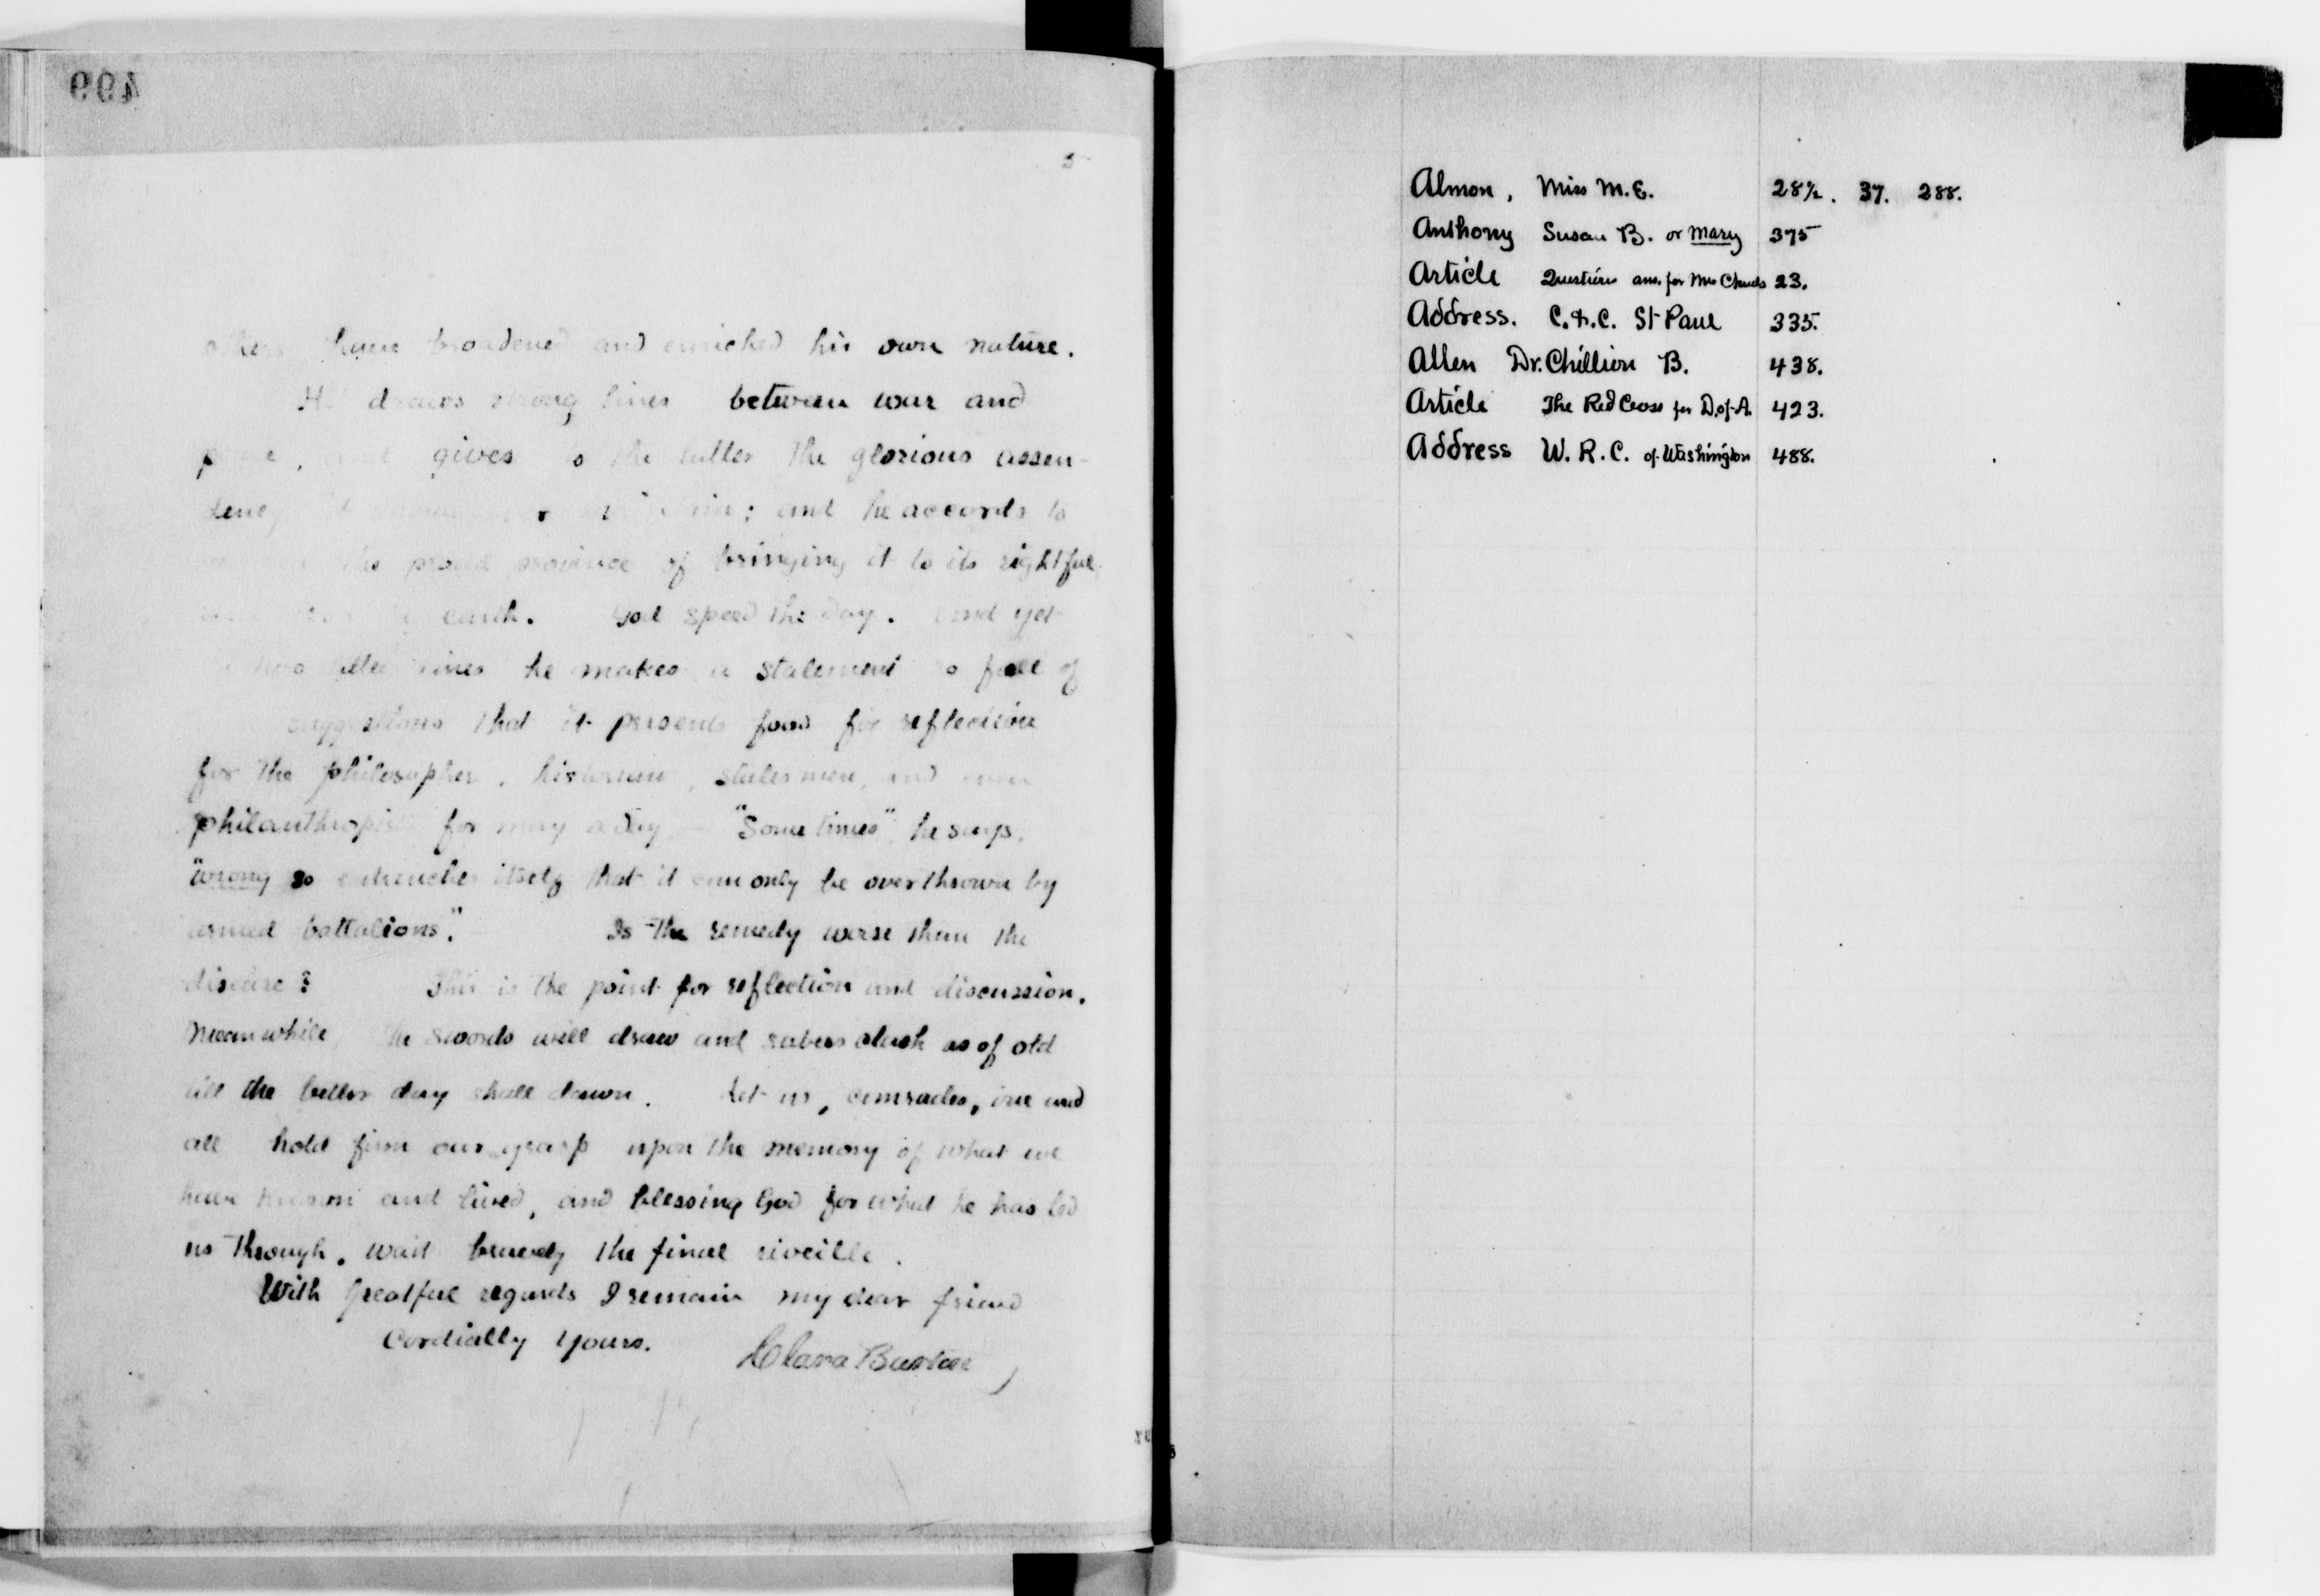 499
5
others have broadened and enriched his own nature.
He draws strong lines between war and
gives to the latter the glorious assen-
dency ; and he accords to
the proud province of bringing it to its rightful
earth. God speed the day. And yet
lines he makes a statement so full of
suggestions that it presents food for reflection
for the philosopher, historian, statesmen, and even
philanthropist for many a day - "Sometimes", he says,
"wrong so entrenches itself that it can only be overthrown by
armed battalions." Is the remedy worse than the
disease? This is the point for reflection and discussion.
Meanwhile, the swords will draw and sabers clash as of old
till the better day shall dawn. Let us, comrades, one and
all hold firm our grasp upon the memory of what we
have known and lived, and blessing God for what he has led
us through. wait bravely the final riveille.
With greatful regards I remain my dear friend
Cordially yours.
Clara Barton
Almon, Miss M.E. 28½. 37. 288.
Anthony Susan B. or Mary 375
Article Questions ans. for Mrs 23.
Address. C. & C. St Paul 335.
Allen Dr. Chillion B. 438.
Article The Red Cross for D. of A. 423.
Address W. R. C. of Washington 488.